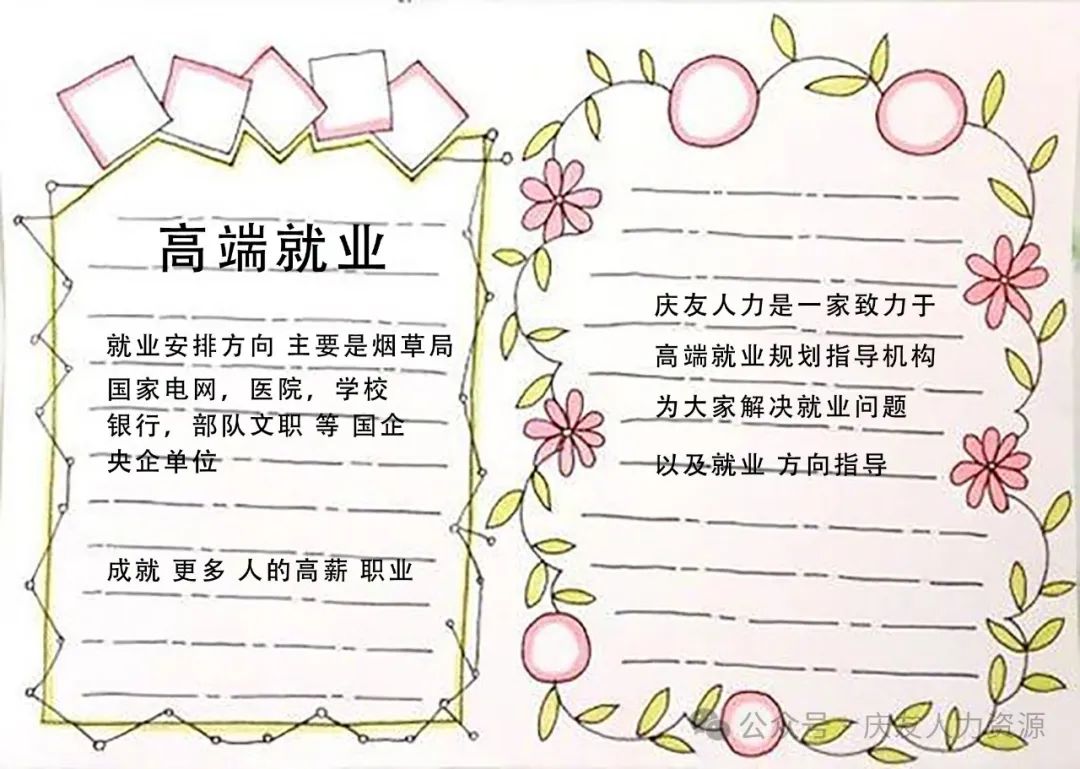 高端就业
就业安排方向 主要是烟草局
国家电网，医院，学校
银行，部队文职 等 国企
央企单位
成就 更多 人的高薪 职业
庆友人力是一家致力于
高端就业规划指导机构
为大家解决就业问题
以及就业 方向指导
公众号·庆友人力资源